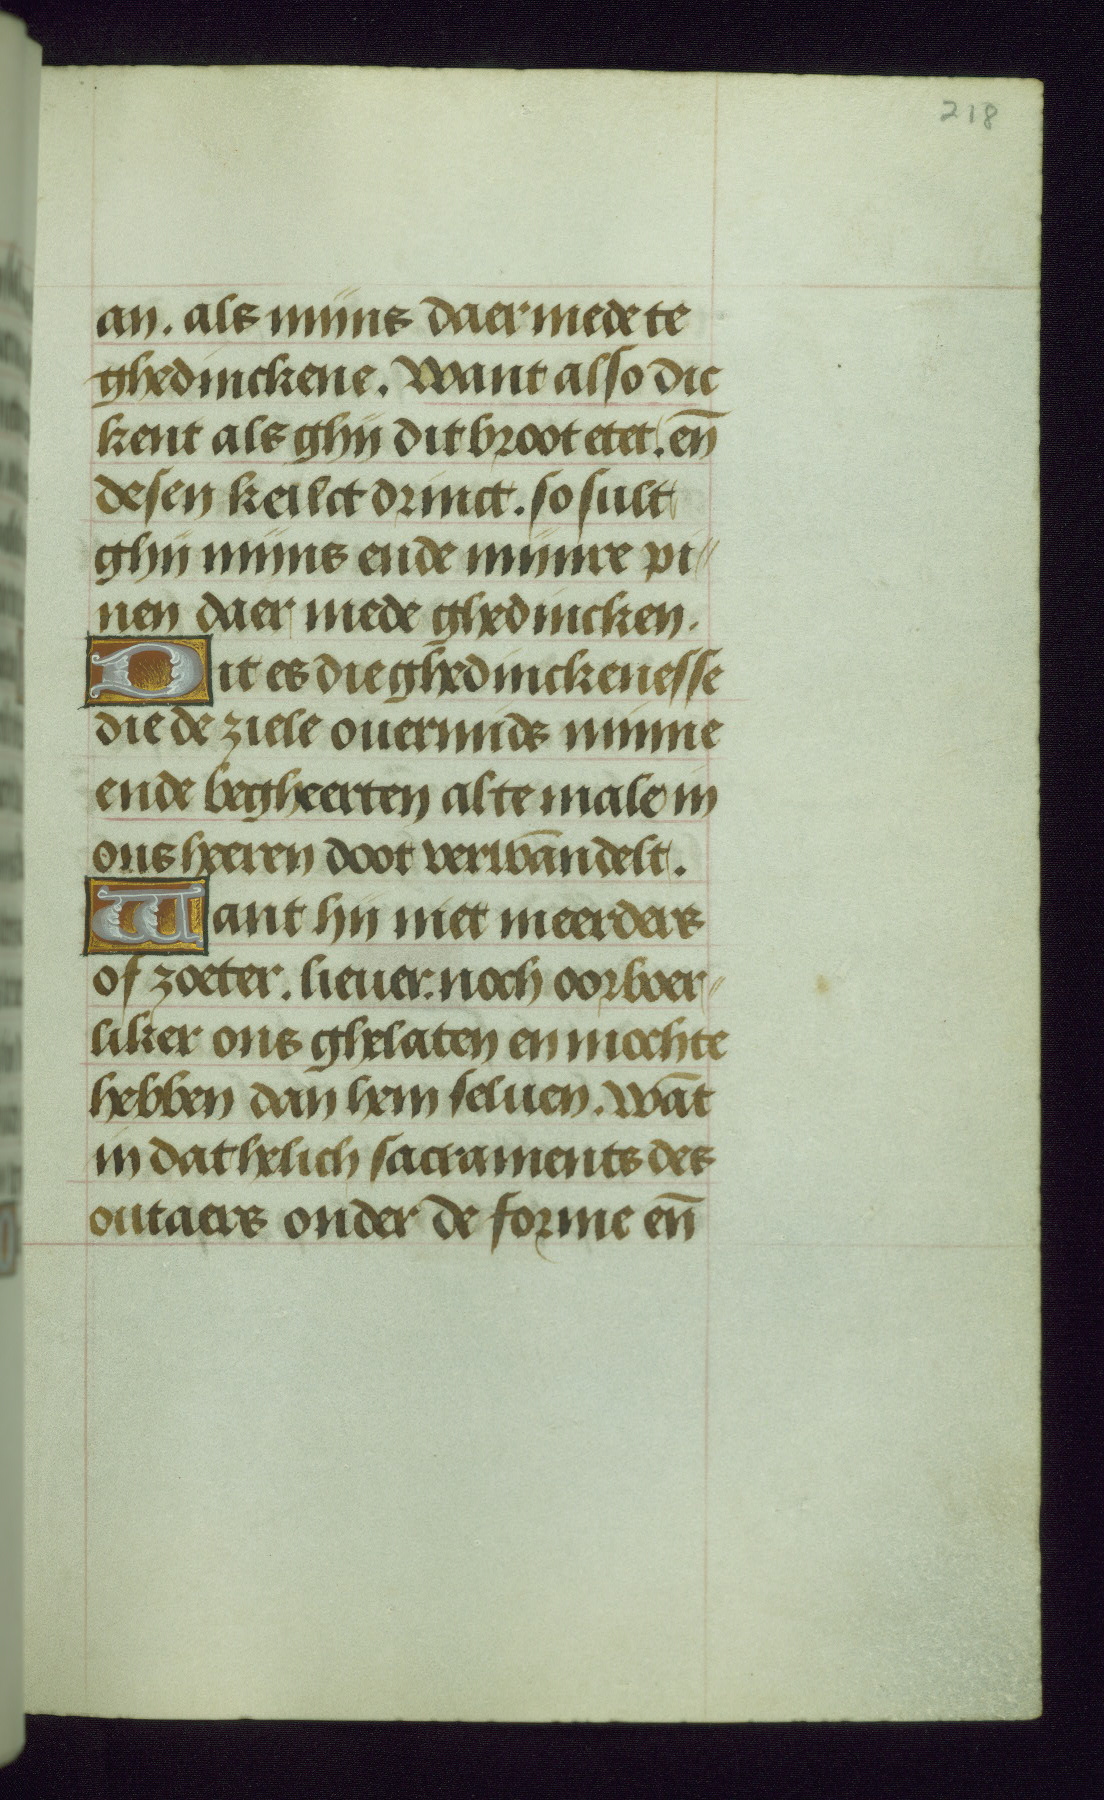 218
an. als mijns daer mede te
ghedinckene. Want also dic
kent als ghij dit broot etet. en̄
desen keilct drinct. so sult
ghij mijns ende mijnre pi
nen daer mede ghedincken.
Dit es die ghedinckenesse
die de ziele ouermids minne
ende begheerten alte male in
ons heeren doot verwāndelt.
Want hij niet meerders
of zoeter. lieuer. noch oorboer
liker ons ghelaten en mochte
hebben dan hem seluen. Wāt
in dat helich sacraments des
outaers onder de forme en̄